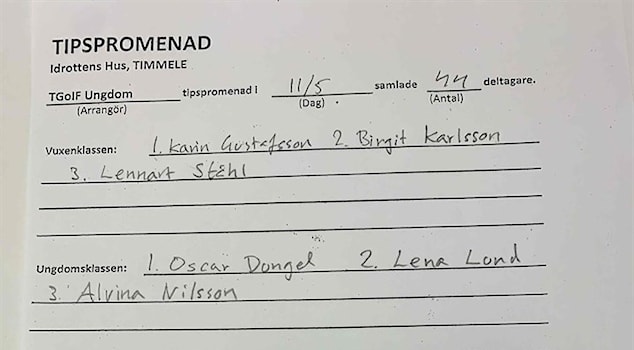 TIPSPROMENAD
Idrottens Hus, TIMMELE
TGoIF Ungdom tipspromenad i 11/5 samlade 44 deltagare.
(Arrangör) (Dag) (Antal)
Vuxenklassen: 1. Karin Gustafsson 2. Birgit Karlsson
3. Lennart Ståhl
Ungdomsklassen: 1. Oscar Dongel 2. Lena Lund
3. Alvina Nilsson